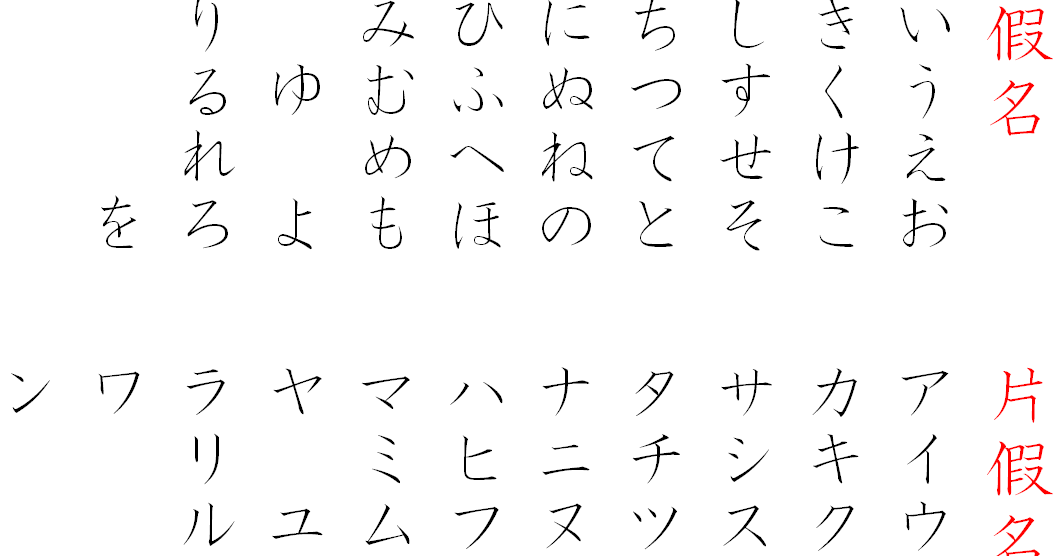 假名
いうえお
きくけこ
しすせそ
ちつてと
にぬねの
ひふへほ
みむめも
ゆよ
りるれろ
を
片假名
アイウ
カキク
サシス
タチツ
ナニヌ
ハヒフ
マミム
ヤユ
ラリル
ワ
ン